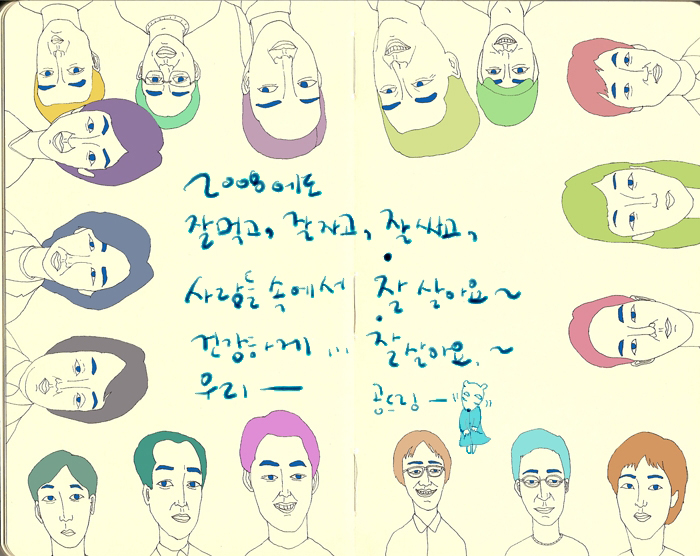 2008에도
잘먹고, 잘자고, 잘싸고,
사람들 속에서 잘 살아요~
건강하게 ... 잘살아요.~
우리 —